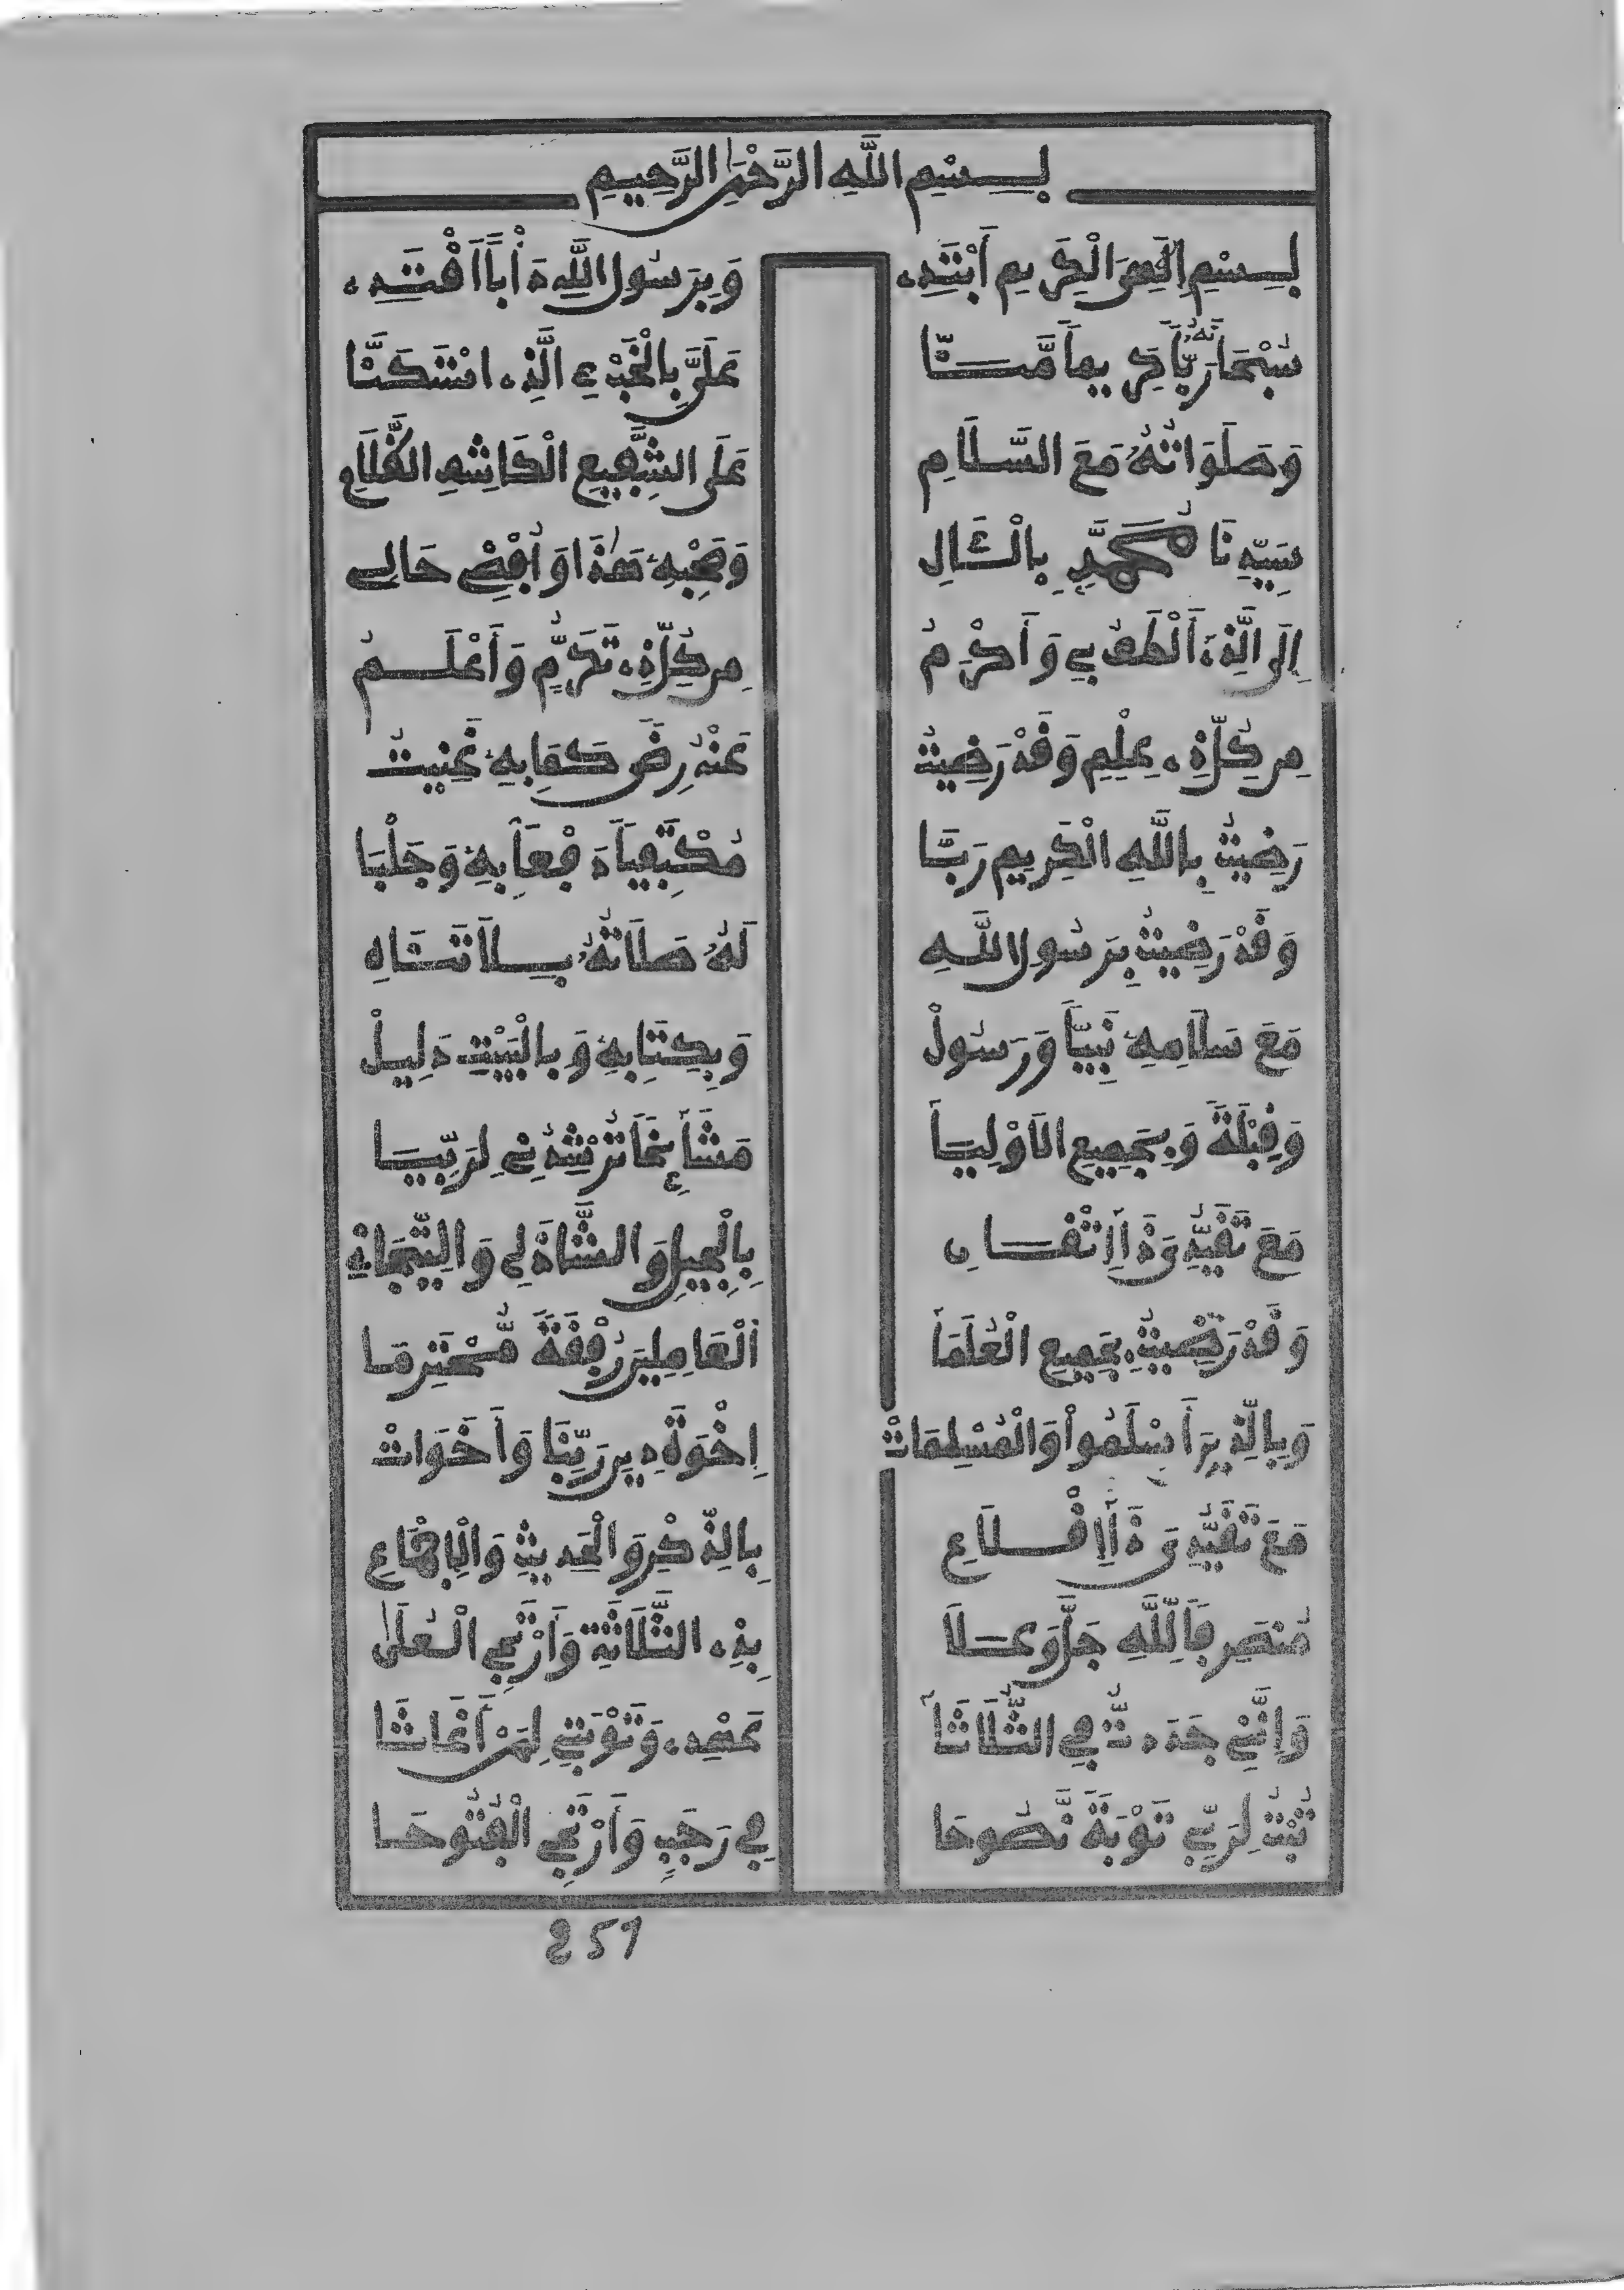 بِسْمِ اللَّهِ الرَّحْمٰنِ الرَّحِيمِ
بِسْمِ الْكَرِيمِ أَبْتَدِي وَبِرَسُولِ اللَّهِ دَأْبًا أَقْتَدِي
سُبْحَانَهُ رَبًّا كَرِيمًا مَنَّا عَلَيَّ بِالْخَيْرِ الَّذِي
وَصَلَوَاتُهُ مَعَ السَّلَامِ عَلَى الشَّفِيعِ الْكَاشِفِ الظَّلَامِ
سَيِّدِنَا مُحَمَّدٍ بِالْئَالِ وَصَحْبِهِ هَٰذَا وَأُفْضِي حَالِي
إِلَى الَّذِي أَلْطَفُ بِي وَأَكْرَمُ مِن كُلِّ ذِي تَكَرُّمٍ وَأَعْلَمُ
مِن كُلِّ ذِي عِلْمٍ وَقَدْ رَضِيتُ عَنْهُ رِضًى كَفَى بِهِ غَنِيتُ
رَضِيتُ بِاللَّهِ الْكَرِيمِ رَبَّا مُكْتَفِيًا دَفْعًا بِهِ وَجَلْبَا
وَقَدْ رَضِيتُ بِرَسُولِ اللَّهِ لَهُ صَلَاتُهُ بِلَا تَنَاهِ
مَعَ سَلَامِهِ نَبِيًّا وَرَسُولْ وَبِكِتَابِهِ وَبِالْبَيْتِ دَلِيلْ
وَقِبْلَةً وَبِجَمِيعِ الْأَوْلِيَا مَشَائِخًا تُرْشِدُنِي لِرَبِّيَا
مَعَ تَقَيُّدِي وَذَا إِتْقَانِ بِالْجِيلِ وَالشَّاذَلِي وَالتِّجَانِي
وَقَدْ رَضِيتُ بِجَمِيعِ الْعُلَمَا الْعَامِلِينَ رُفْقَةً مُّحْتَرَمَا
وَبِالَّذِينَ أَسْلَمُوا وَالْمُسْلِمَاتْ إِخْوَةَ دِينِ رَبِّنَا وَأَخَوَاتْ
مَعَ تَقَيُّدِي وَذَا إِقْلَاعِ بِالذِّكْرِ وَالْحَدِيثِ وَالْإِجْمَاعِ
بِاللَّهِ جَلَّ وَعَلَا بِذِي الثَّلَاثَةِ وَأَرْتَجِي الْعُلَىٰ
وَإِنَّنِي جَدَّدتُّ فِي الثُّلَاثَا عَهْدِي وَتَوْبَتِي لِمَنْ أَغَاثَا
تُبْتُ لِرَبِّي تَوْبَةً نَّصُوحَا فِي رَجَبٍ وَأَرْتَجِي الْفُتُوحَا
259